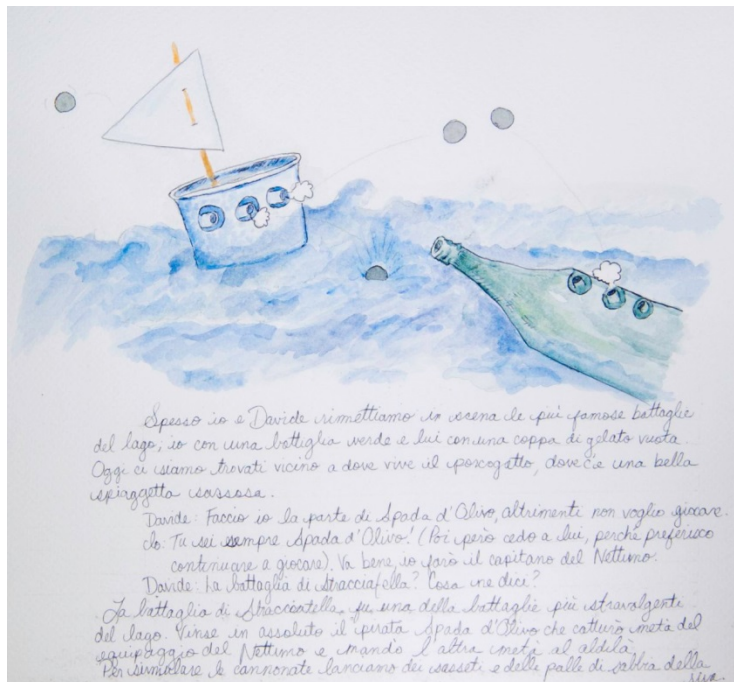 Spesso io e Davide rimettiamo in scena le più famose battaglie
del lago; io con una bottiglia verde e lui con una coppa di gelato vuota.
Oggi ci siamo trovati vicino a dove vive il porcogatto, dove c'è una bella
spiaggetta sassosa.
Davide: Faccio io la parte di Spada d'Olivo, altrimenti non voglio giocare.
Io: Tu sei sempre Spada d'Olivo! (Poi però cedo a lui, perché preferisco
continuare a giocare). Va bene, io farò il capitano del Nettuno.
Davide: La battaglia di Stracciatella? Cosa ne dici?
La battaglia di Stracciatella fu una della battaglie più stravalgente
del lago. Vinse in assoluto il pirata Spada d'Olivo che catturò metà del
equipaggio del Nettuno e mandò l'altra metà al aldilà.
Per simulare le cannonate lanciamo dei sasseti e delle palle di sabbia della
riva.